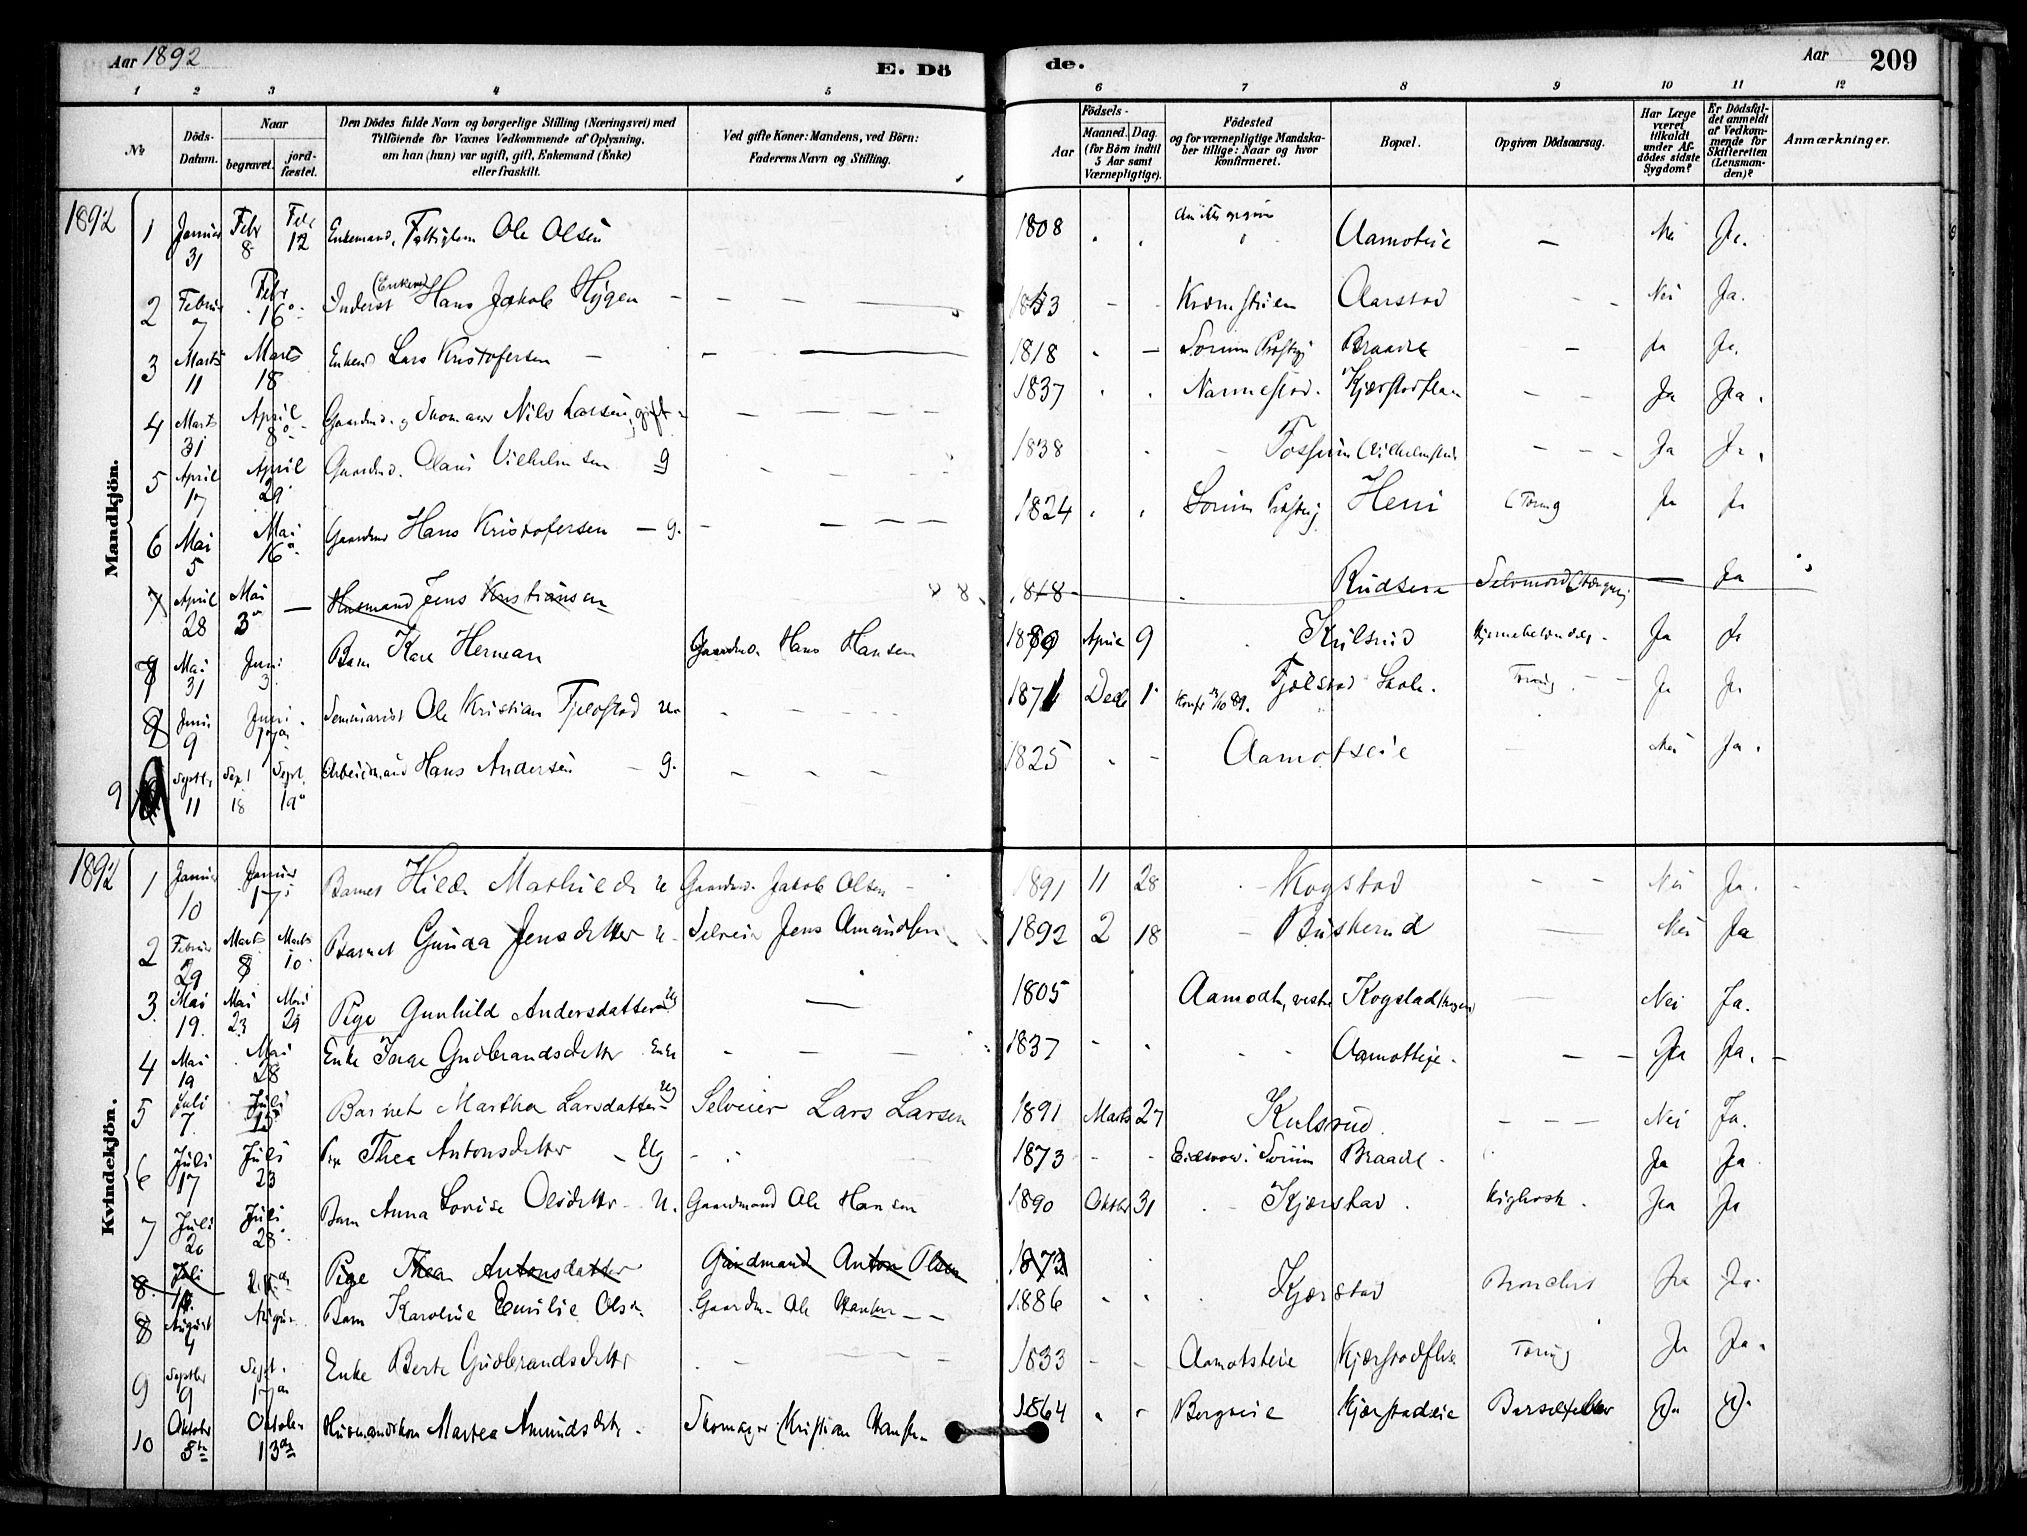 Aar 1892 E. Dö de. Aar 209
1 2 3 4 5 6 7 8 9 10 11 12
No Döds-Datum. Naar begravet. jordfæstet. Den Dödes fulde Navn og borgerlige Stilling (Næringsvei) med Tilföiende for Voxnes Vedkommende af Oplysning. om han (hun) var ugift, gift, Enkemand (Enke) eller fraskilt. Ved gifte Koner: Mandens, ved Börn: Faderens Navn og Stilling. Aar Födsels- Maaned. Dag. (for Börn indtil 5 Aar samt Værnepligtige). Födested og for værnepligtige Mandskaber tillige: Naar og hvor konfirmeret. Bopæl. Opgiven Dödsaarsag. Har Læge været tilkaldt under Afdödes sidste Sygdom? Er Dödsfaldet anmeldt af Vedkommende for Skifteretten (Lensmanden)? Anmærkninger.
Mandkjön.
1892 1 Januar 31 Febr 8 Febr 12 Enkemand, Ole Olsen 1808 Nei Ja.
2 Februar 7 Febr 16 Inderst (Enkem) Hans Jakob Hygen 1853 Aarstad Nei Ja.
3 Marts 11 Marts 18 Enkem Lars Kristofersen 1818 Sörum Braade Ja Ja.
4 Marts 31 April 8 Gaardmd. og Skomager Nils Larsen, gift 1837 Nannestad. Ja Ja.
5 April 17 April 29 Gaardmd. Olaus Vilhelmsen g 1838 Fossum Ja Ja.
6 Mai 5 Mai 16 Gaardmd Hans Kristofersen g. 1824 Sörum Hem Tæring Ja Ja
7 April 28 Mai 3 Husmand Jens Kristiansen 1818 Rudsen Selvmord Ja
8 Mai 31 Juni 3 Barn Karl Herman Gaardmd. Hans Hansen April 9 Kulsrud Ja Ja
8 Juni 9 Juni 17 Seminarist Ole Kristian Fjelstad u. 1871 Decb 1 Konf. 89. Fjelstad Skole. Tæring Ja Ja
9 Septbr 11 Sept 18 Sept. 19 Arbeidsmand Hans Andersen g. 1825 Aamotseie Nei Ja.
Kvindekjön.
1892 1 Januar 10 Januar 17 Barnet Hilda Mathilde u Gaardmd. Jakob Olsen 1891 11 28 Kogstad Nei Ja.
2 Februar 29 Marts 8 Marts 10 Barnet Gunda Jensdatter u Selveier Jens Amundsen 1892 2 18 Buskerud Nei Ja
3. Mai 19. Mai 23 Mai 29 Pige Gunhild Andersdatter Ug 1805 Aamodt, vestre Kogstad Nei Ja.
4 Mai 19 Mai 28 Enke Gudbrandsdatter Enke 1837 Aamotteie. Ja Ja.
5 Juli 7. Juli 15 Barnet Martha Larsdatter Ug Selveier Lars Larsen 1891 Marts 27 Kulsrud. Nei Ja.
6 Juli 17 Juli 23 Pige Thea Antonsdatter Ug 1873 Sörum Braade Ja Ja
7 Juli 20 Juli 28 Barn Anna Lovise Olsdatter U. Gaardmand Ole Hansen 1890 Oktbr 31 Kjærstad. Kighoste. Ja Ja
8. Juli 17. Pige Thea Antonsdatter Gardmand Anton Olsen 1873
8 August 4 August Barn Karoline Emilie Olsen Gaardm. Ole Hansen 1886 Kjærstad Bronchit Ja Ja.
9 Septbr 9 Sept. 17 Enke Berte Gudbrandsdatter 1833 Aamotsteie Tæring Ja Ja.
10 Oktober 8de Oktober 13de Husmandskone Martea Amundsdatter. Skomager Kristian Hansen 1864 Bergseie Kjærstadeie Barselfeber Ja Ja.